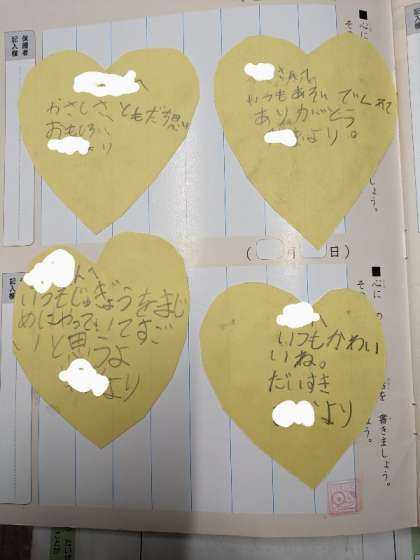 へ
やさしさ、ともだち思い
おもしろい、
より
さんへ
いつもあそんでくれて
ありがとう
より。
へ
いつもじゅぎょうをまじ
めにやっていてすご
いと思うよ
より
へ
いつもかわい
いね。
だいすき
より
保護者
記入欄
記入欄
■心に
そ
しょう。
( 月 日)
■心に の
そ
を 書きましょう。
ょう。